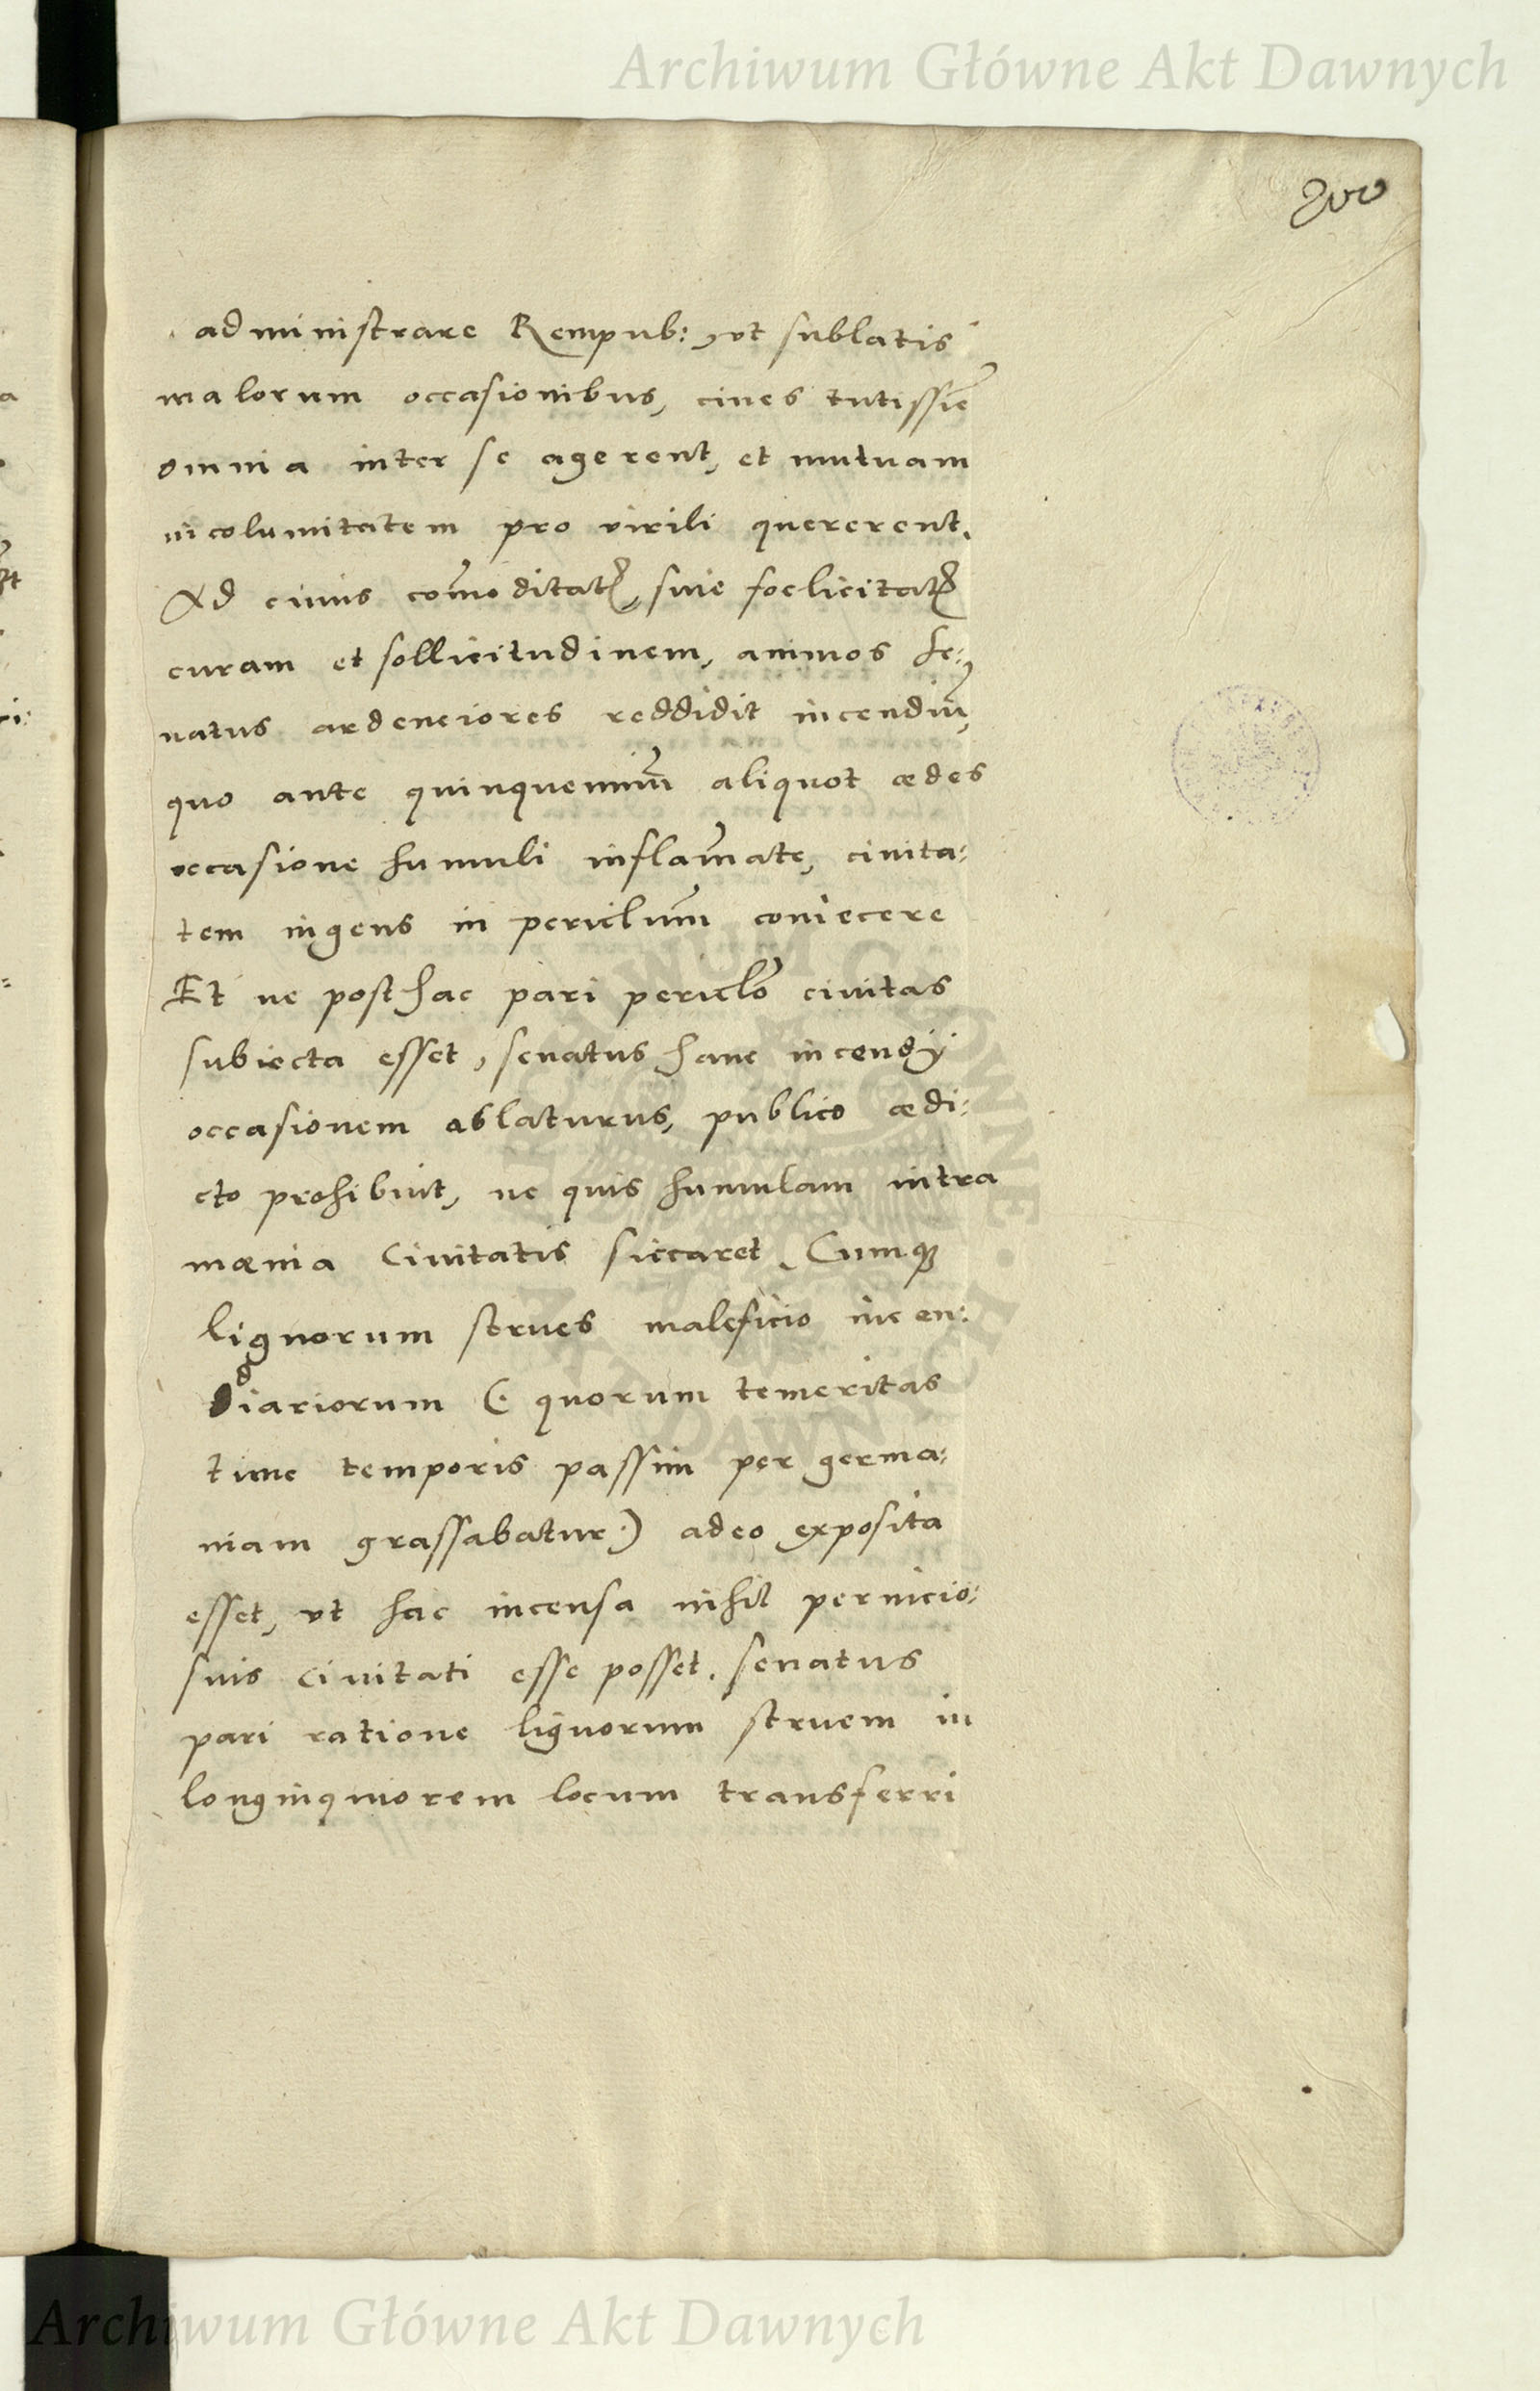 Archiwum Główne Akt Dawnych
200
administrare Rempub: , vt sublatis
malorum occasionibus, ciues tutissiē
omnia inter se agerent, et mutuam
incolumitatem pro virili quererent.
Ad ciuius com̃oditatẽ, suie foelicitatẽ
curam et sollicitudinem, animos se:
natus ardenciores reddidit incendiũ,
quo ante quinquenniũ aliquot ædes
occasione humuli inflam̃ate, ciuita:
tem ingens in periclũm coniecere
Et ne posthac pari periclõ ciuitas
subiecta esset, senatus hanc incendÿ
occasionem ablaturus, publico ædi:
cto prohibuit, ne quis humulam intra
mænia Ciuitatis siccaret. Cumqꝫ
lignorum strues maleficio incen:
diariorum (. quorum temeritas
tunc temporis passim per germa:
niam grassabatur.) adeo exposita
esset, vt hac incensa nihil pernicio:
suis Ciuitati esse posset. senatus
pari ratione lignorum struem in
longinquiorem locum transferri
ARCHIWUM GŁÓWNE AKT DAWNYCH
Archiwum Główne Akt Dawnych